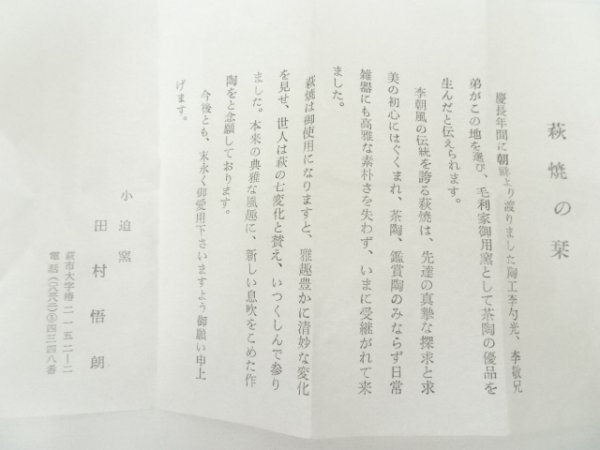 萩焼の栞
慶長年間に朝鮮より渡りました陶工李勺光、李敬兄
弟がこの地を選び、毛利家御用窯として茶陶の優品を
生んだと伝えられます。
李朝風の伝統を誇る萩焼は、先達の真摯な探求と求
美の初心にはぐくまれ、茶陶、鑑賞陶のみならず日常
雑器にも高雅な素朴さを失わず、いまに受継がれて来
ました。
萩焼は御使用になりますと、雅趣豊かに清妙な変化
を見せ、世人は萩の七変化と賛え、いつくしんで参り
ました。本来の典雅な風趣に、新しい息吹をこめた作
陶をと念願しております。
今後とも、末永く御愛用下さいますよう御願い申上
げます。
小迫窯
田村悟朗
萩市大字椿二一五二ー二
電話(〇八三八二)⑤四三四八番